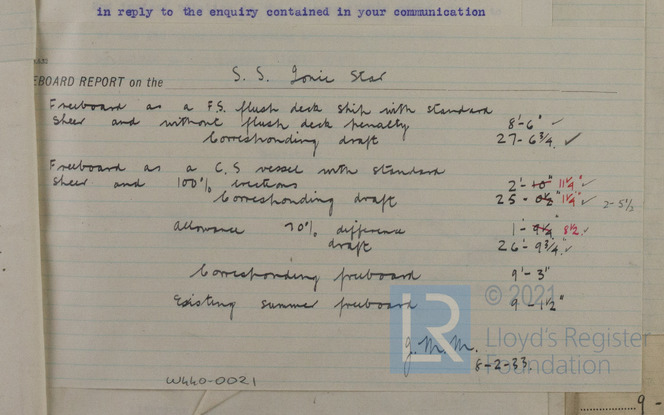 in reply to the enquiry contained in your communication
EBOARD REPORT on the S.S. Ionic Star
Freeboard as a F.S. flush deck ship with standard
Sheer and without flush deck penalty 8'-6" ✓
Corresponding draft 27-6¾ ✓
Freeboard as a C.S vessel with standard
Sheer and 100% erections 2'- 10" 11¼" ✓
Corresponding draft 25- 0½" 11¼" ✓ 2-5½
Allowance 70% difference 1'- 9¼ 8½ ✓
draft 26'-9¾" ✓
Corresponding freeboard 9'-3"
Existing summer freeboard 9-1½"
J.M.M.
8-2-33.
W440-0021
LR
© 2021
Lloyd's Register
Foundation
9 -